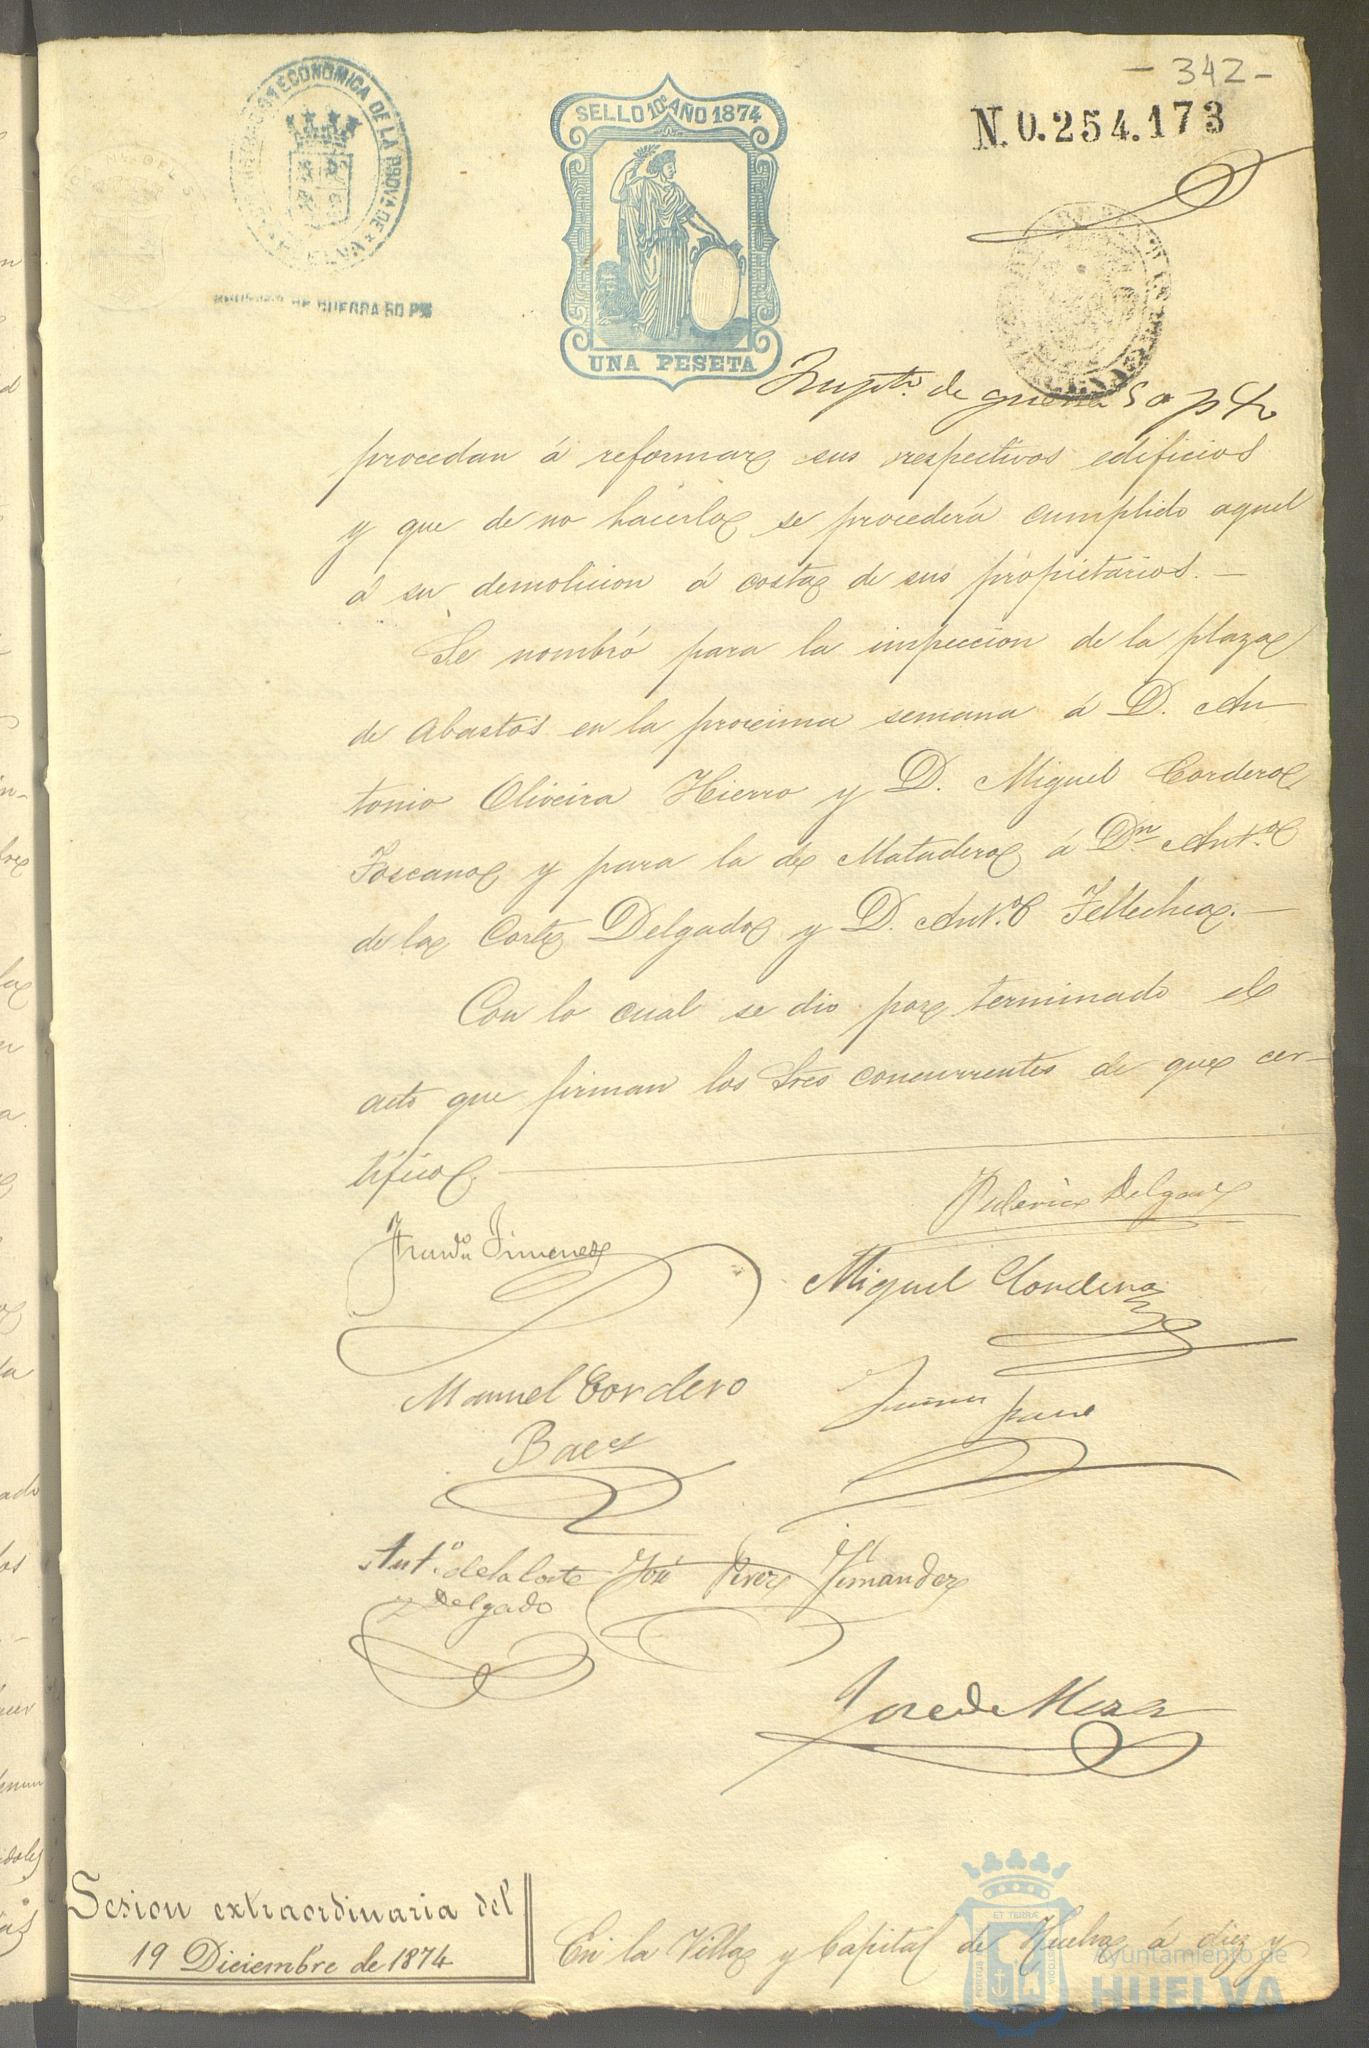 - 342 -
SELLO 10º AÑO 1874
N.0.254.173
ECONOMICA DE LA PROVA DE
DE GUERRA 50 P%
UNA PESETA
Impto. de guerra 50 p%
procedan á reformar sus respectivos edificios
y que de no hacerlo se procederá cumplido aquel
á su demolicion á costa de sus propietarios.—
Se nombró para la inspeccion de la plaza
de Abastos en la procsima semana á D. An
tonio Oliveira Hierro y D. Miguel Cordero
Toscano y para la de Matadero á Dn. Anto.
de la Corte Delgado y D. Anto. Tellechea.—
Con lo cual se dio por terminado el
acto que firman los Sres concurrentes de que cer-
tifico.
Federico Delgado
Franco Jimenez
Miguel Cordero
Manuel Cordero
Baez
Anto. de la Corte
y Delgado
José Perez Fernandez
Jose de Mesa
Sesion extraordinaria del
19 Diciembre de 1874
En la Villa y Capital de Huelva á diez y
Ayuntamiento de
HUELVA